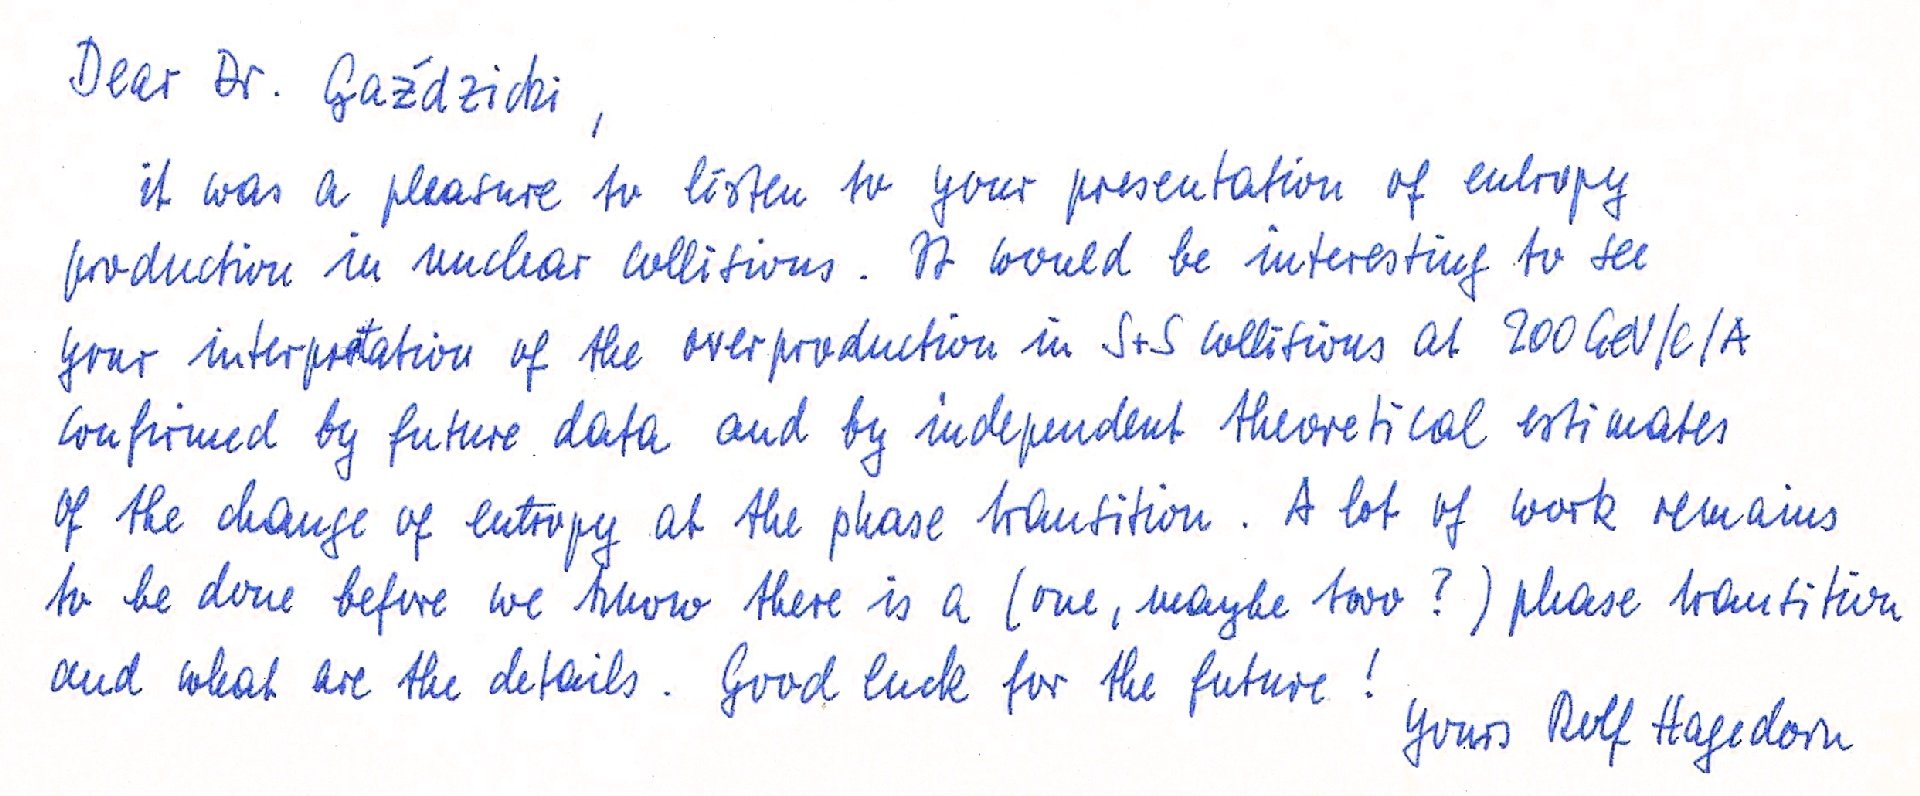 Dear Dr. Gaździcki,
it was a pleasure to listen to your presentation of entropy
production in nuclear collisions. It would be interesting to see
your interpretation of the overproduction in S+S collisions at 200 GeV/c/A
confirmed by future data and by independent theoretical estimates
of the change of entropy at the phase transition. A lot of work remains
to be done before we know there is a (one, maybe two?) phase transition
and what are the details. Good luck for the future!
Yours Rolf Hagedorn